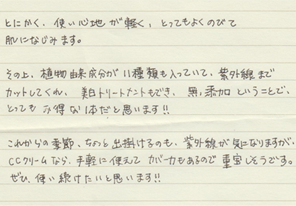 とにかく、使い心地が軽く、とってもよくのびて
肌になじみます。
その上、植物由来成分が11種類も入っていて、紫外線まで
カットしてくれ、美白トリートメントもでき、無添加ということで、
とってもお得な1本だと思います!!
これからの季節、ちょっと出掛けるのも、紫外線が気になりますが、
CCクリームなら、手軽に使えてカバー力もあるので重宝しそうです。
ぜひ、使い続けたいと思います!!